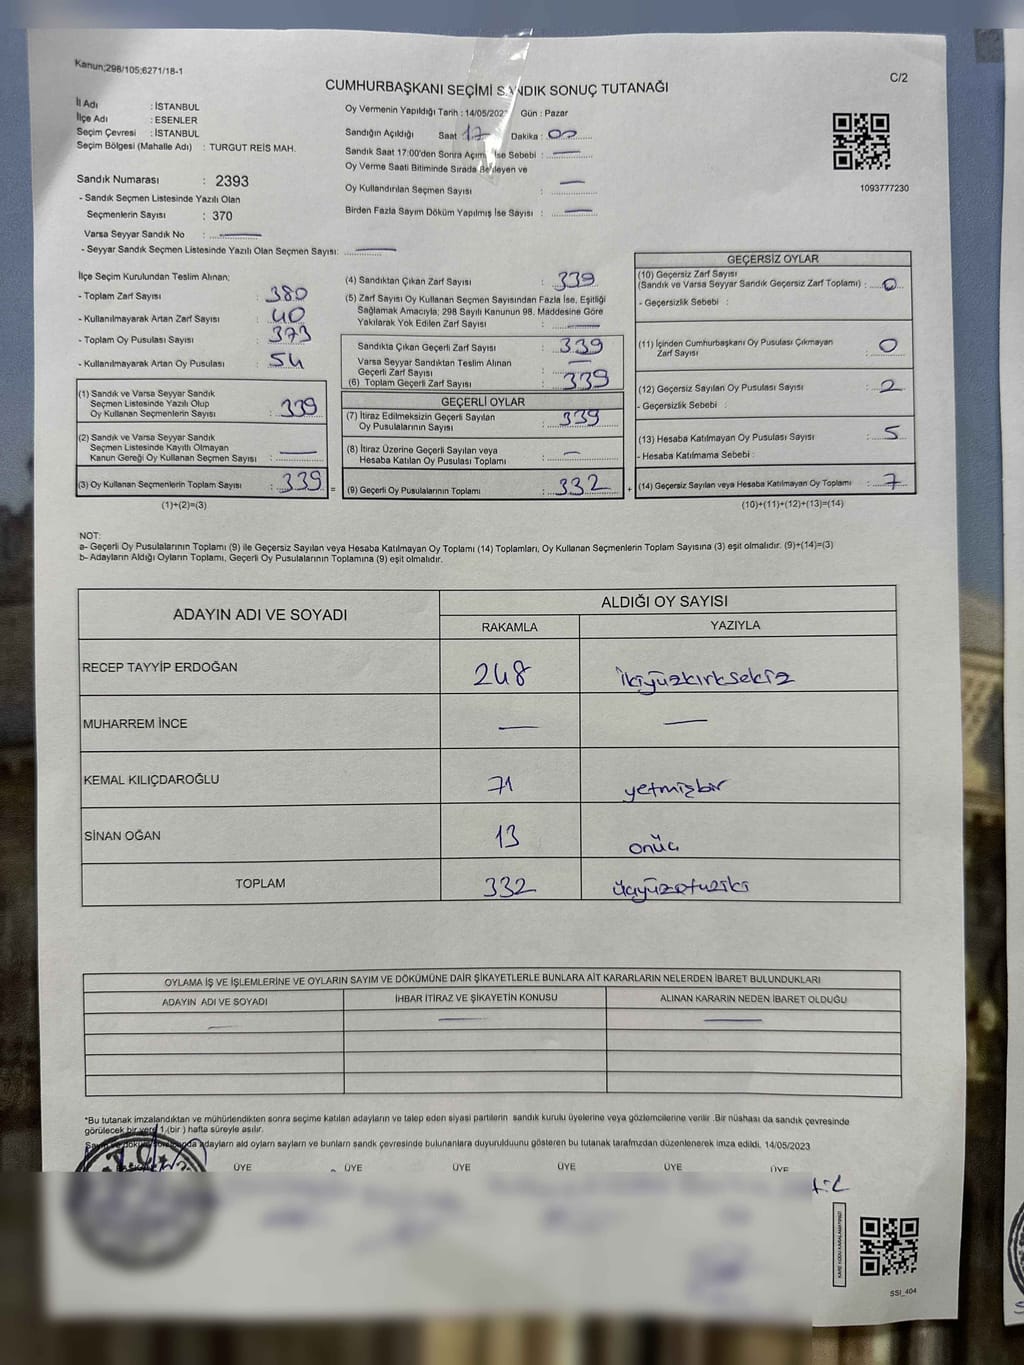 Kanun;298/105;6271/18-1
C/2
CUMHURBAŞKANI SEÇİMİ SANDIK SONUÇ TUTANAĞI
İl Adı : İSTANBUL
İlçe Adı : ESENLER
Seçim Çevresi : İSTANBUL
Seçim Bölgesi (Mahalle Adı) : TURGUT REİS MAH.
Sandık Numarası : 2393
- Sandık Seçmen Listesinde Yazılı Olan
Seçmenlerin Sayısı : 370
Varsa Seyyar Sandık No : —
- Seyyar Sandık Seçmen Listesinde Yazılı Olan Seçmen Sayısı: —
Oy Vermenin Yapıldığı Tarih : 14/05/202 Gün : Pazar
Sandığın Açıldığı Saat 17 Dakika : 00
Sandık Saat 17:00'den Sonra Açım İse Sebebi : —
Oy Verme Saati Bitiminde Sırada Bekleyen ve
Oy Kullandırılan Seçmen Sayısı : —
Birden Fazla Sayım Döküm Yapılmış İse Sayısı : —
1093777230
İlçe Seçim Kurulundan Teslim Alınan;
- Toplam Zarf Sayısı : 380
- Kullanılmayarak Artan Zarf Sayısı : 40
- Toplam Oy Pusulası Sayısı : 373
- Kullanılmayarak Artan Oy Pusulası : 54
(1) Sandık ve Varsa Seyyar Sandık
Seçmen Listesinde Yazılı Olup
Oy Kullanan Seçmenlerin Sayısı : 339
(2) Sandık ve Varsa Seyyar Sandık
Seçmen Listesinde Kayıtlı Olmayan
Kanun Gereği Oy Kullanan Seçmen Sayısı : —
(3) Oy Kullanan Seçmenlerin Toplam Sayısı : 339 =
(1)+(2)=(3)
(4) Sandıktan Çıkan Zarf Sayısı : 339
(5) Zarf Sayısı Oy Kullanan Seçmen Sayısından Fazla İse, Eşitliği
Sağlamak Amacıyla; 298 Sayılı Kanunun 98. Maddesine Göre
Yakılarak Yok Edilen Zarf Sayısı : —
Sandıkta Çıkan Geçerli Zarf Sayısı : 339
Varsa Seyyar Sandıktan Teslim Alınan
Geçerli Zarf Sayısı : —
(6) Toplam Geçerli Zarf Sayısı : 339
GEÇERLİ OYLAR
(7) İtiraz Edilmeksizin Geçerli Sayılan
Oy Pusulalarının Sayısı : 339
(8) İtiraz Üzerine Geçerli Sayılan veya
Hesaba Katılan Oy Pusulası Toplamı : —
(9) Geçerli Oy Pusulalarının Toplamı : 332 +
GEÇERSİZ OYLAR
(10) Geçersiz Zarf Sayısı
(Sandık ve Varsa Seyyar Sandık Geçersiz Zarf Toplamı) : 0
- Geçersizlik Sebebi :
(11) İçinden Cumhurbaşkanı Oy Pusulası Çıkmayan
Zarf Sayısı : 0
(12) Geçersiz Sayılan Oy Pusulası Sayısı : 2
- Geçersizlik Sebebi :
(13) Hesaba Katılmayan Oy Pusulası Sayısı : 5
- Hesaba Katılmama Sebebi :
(14) Geçersiz Sayılan veya Hesaba Katılmayan Oy Toplamı : 7
(10)+(11)+(12)+(13)=(14)
NOT:
a- Geçerli Oy Pusulalarının Toplamı (9) ile Geçersiz Sayılan veya Hesaba Katılmayan Oy Toplamı (14) Toplamları, Oy Kullanan Seçmenlerin Toplam Sayısına (3) eşit olmalıdır. (9)+(14)=(3)
b- Adayların Aldığı Oyların Toplamı, Geçerli Oy Pusulalarının Toplamına (9) eşit olmalıdır.
ADAYIN ADI VE SOYADI ALDIĞI OY SAYISI
RAKAMLA YAZIYLA
RECEP TAYYİP ERDOĞAN 248 ikiyüzkırksekiz
MUHARREM İNCE — —
KEMAL KILIÇDAROĞLU 71 yetmişbir
SİNAN OĞAN 13 onüç
TOPLAM 332 üçyüzotuziki
OYLAMA İŞ VE İŞLEMLERİNE VE OYLARIN SAYIM VE DÖKÜMÜNE DAİR ŞİKAYETLERLE BUNLARA AİT KARARLARIN NELERDEN İBARET BULUNDUKLARI
ADAYIN ADI VE SOYADI İHBAR İTİRAZ VE ŞİKAYETİN KONUSU ALINAN KARARIN NEDEN İBARET OLDUĞU
— — —
*Bu tutanak imzalandıktan ve mühürlendikten sonra seçime katılan adayların ve talep eden siyasi partilerin sandık kurulu üyelerine veya gözlemcilerine verilir .Bir nüshası da sandık çevresinde
görülecek bir yere 1.(bir ) hafta süreyle asılır.
adayların ald oyların sayların ve bunların sandk çevresinde bulunanlara duyurulduunu gösteren bu tutanak tarafmzdan düzenlenerek imza edildi, 14/05/2023
T.C.
ÜYE ÜYE ÜYE ÜYE ÜYE ÜYE
SSI_404